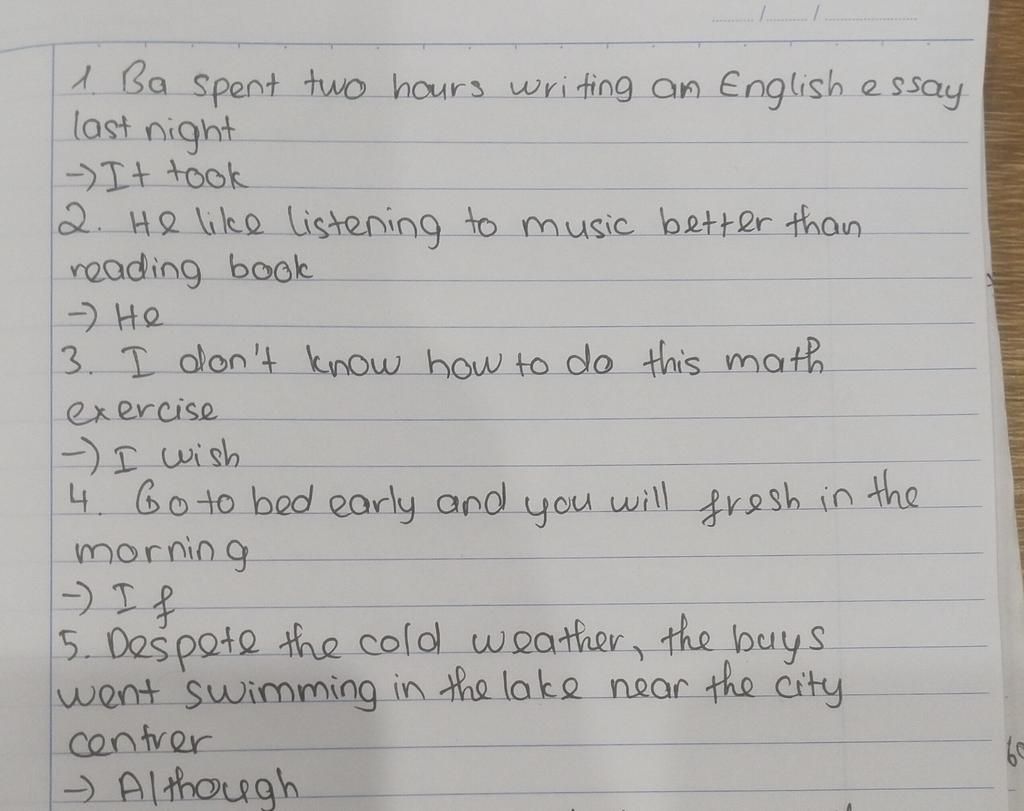 1. Ba spent two hours writing an English essay
last night
→ It took
2. He like listening to music better than
reading book
→ He
3. I don't know how to do this math
exercise
→ I wish
4. Go to bed early and you will fresh in the
morning
→ If
5. Despete the cold weather, the buys
went swimming in the lake near the city
centrer
→ Although